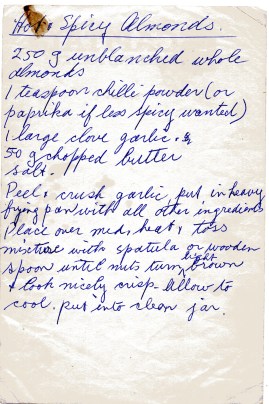 Hot & Spicy Almonds.
250 g unblanched whole
almonds
1 teaspoon chilli powder (or
paprika if less spicy wanted)
1 large clove garlic. &
50 g chopped butter
salt.
Peel & crush garlic put in heavy
frying pan with all other ingredients
Place over med, heat & toss
mixture with spatula or wooden
spoon until nuts turn light brown
& look nicely crisp. Allow to
cool. put into clean jar.